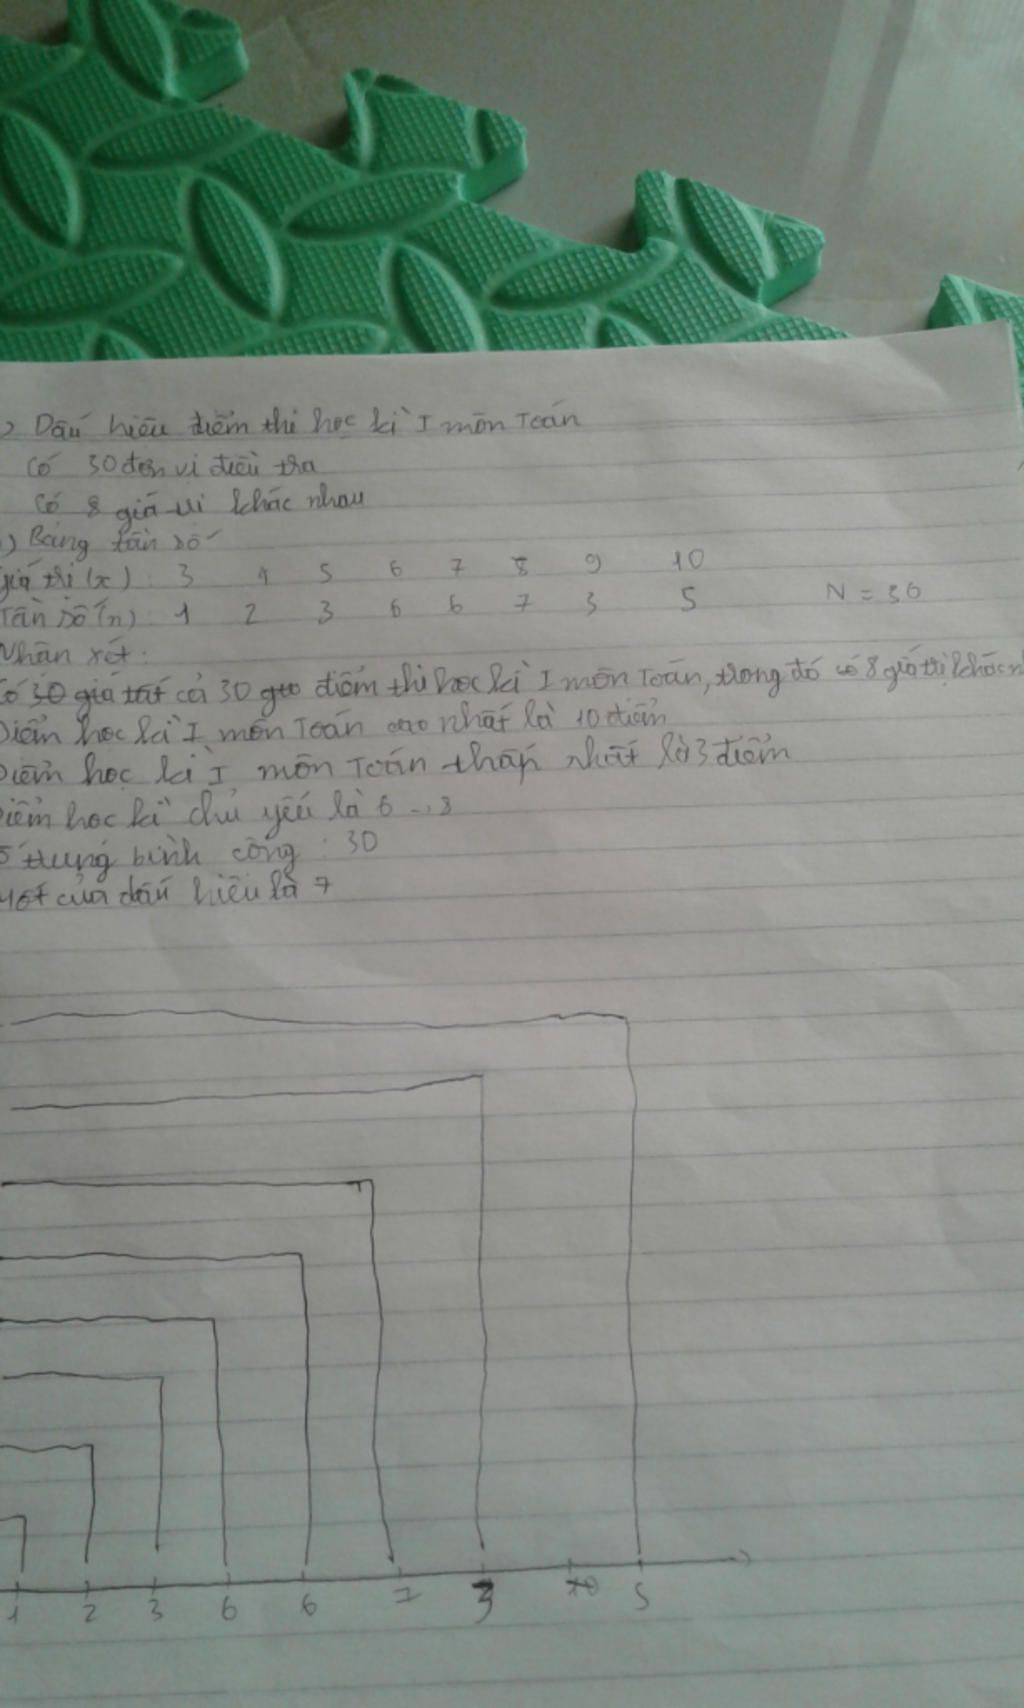 ) Dấu hiệu điểm thi học kì I môn Toán
Có 30 đơn vị điều tra
Có 8 giá trị khác nhau
) Bảng tần số
giá trị (x) : 3 4 5 6 7 8 9 10
Tần số (n) : 1 2 3 6 6 7 3 5 N = 30
Nhận xét :
Có 30 giá tất cả 30 điểm thi học kì I môn Toán, trong đó có 8 giá trị khác
Điểm học kì I môn Toán cao nhất là 10 điểm
Điểm học kì I môn Toán thấp nhất là 3 điểm
Điểm học kì chủ yếu là 6 - 8
ố trung bình cộng : 30
Mốt của dấu hiệu là 7
1 2 3 6 6 7 3 10 5